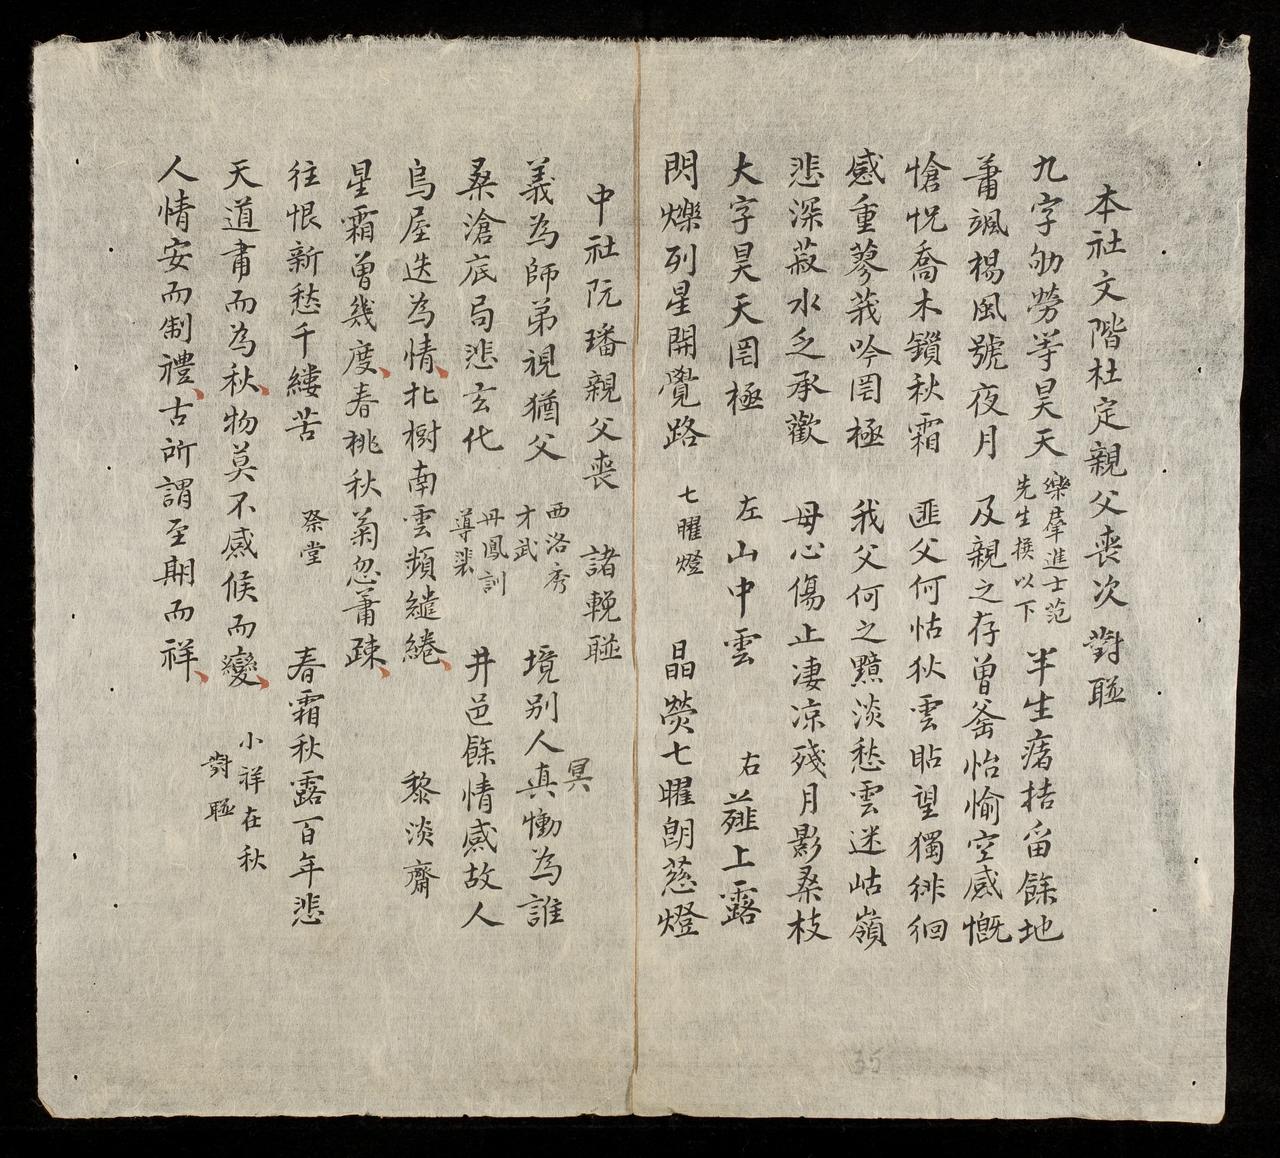 本社文階杜定親父喪次對聯
九字劬勞等昊天 樂羣進士范先生撰以下 半生瘏拮留餘地
蕭颯楊風號夜月 及親之存曾釜怡愉空感慨
愴怳喬木鎖秋霜 匪父何怙狄雲瞻望獨徘徊
感重蓼莪吟罔極 我父何之黯淡愁雲迷岵嶺
悲深菽水乏承歡 母心傷止凄凉殘月影桑枝
大字昊天罔極 左山中雲 右薤上露
閃爍列星開覺路 七曜燈 晶熒七曜朗慈燈
中社阮璠親父喪 諸輓聯
義為師弟視猶父 西洛秀才武 境别人真慟為誰 冥
桑滄底局悲玄化 丹鳳訓導裴 井邑餘情感故人
烏屋迭為情北樹南雲頻繾綣 黎淡齋
星霜曾幾度春桃秋菊忽蕭疎
往恨新愁千縷苦 祭堂 春霜秋露百年悲
天道肅而為秋物莫不感候而變 小祥在秋
人情安而制禮古所謂至期而祥 對聯